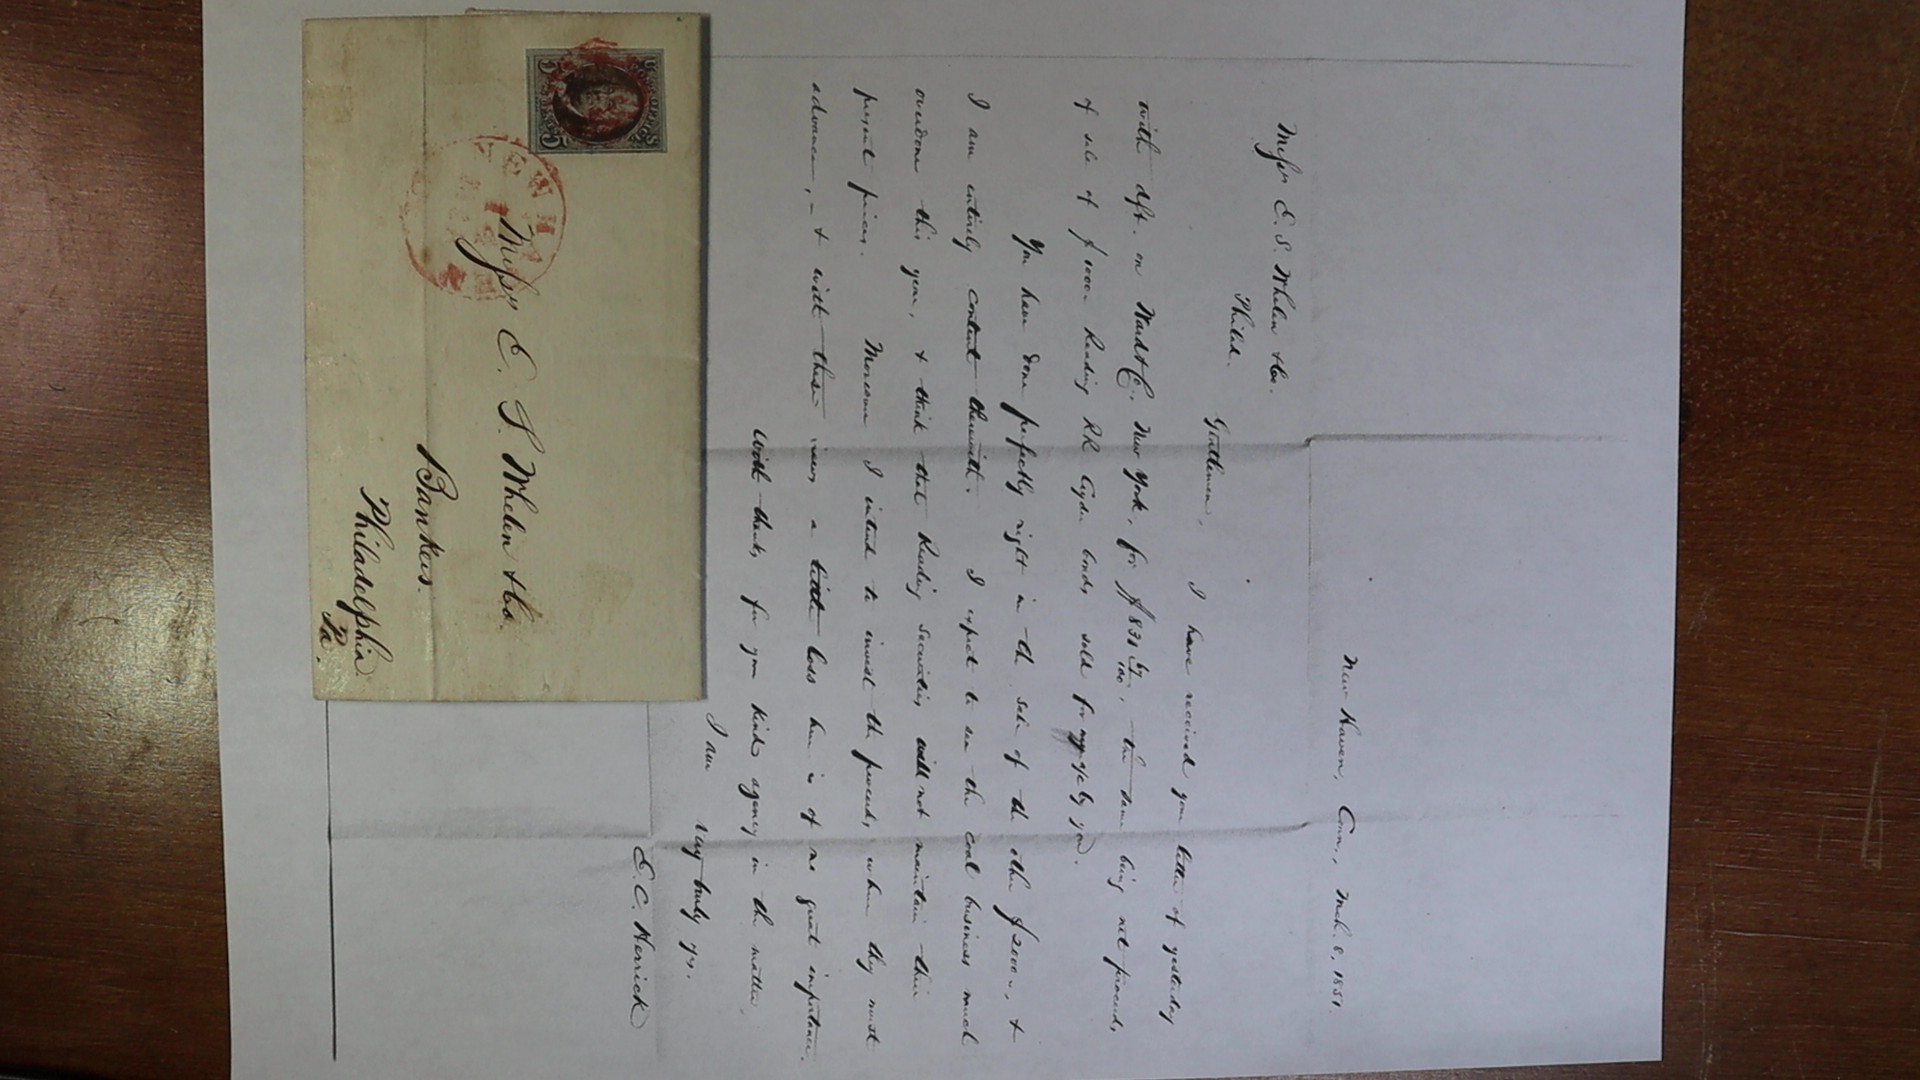 New Haven, Conn., Mch. 8, 1851.
Messrs E. S. Whelen & Co.
Philad.
Gentlemen,
I have received your letter of yesterday
with dft. on Ward & Co. New York, for $831 /100, the same being net proceeds,
of sale of $1000 Reading RR Cyder bonds, sold for my a/c by you.
You have done perfectly right in the sale of the other $2000, &
I am entirely content therewith. I expect to see the coal business much
overdone this year, & think that Reading securities will not maintain their
present prices. Moreover I intend to invest the proceeds, where they must
advance, – & with these views a little loss here is of no great importance.
With thanks for your kind agency in the matter,
I am very truly yrs.
E. C. Herrick
POST OFFICE
FIVE CENTS
NEW HAVEN
Messrs E. S. Whelen & Co.
Bankers.
Philadelphia
Pa.